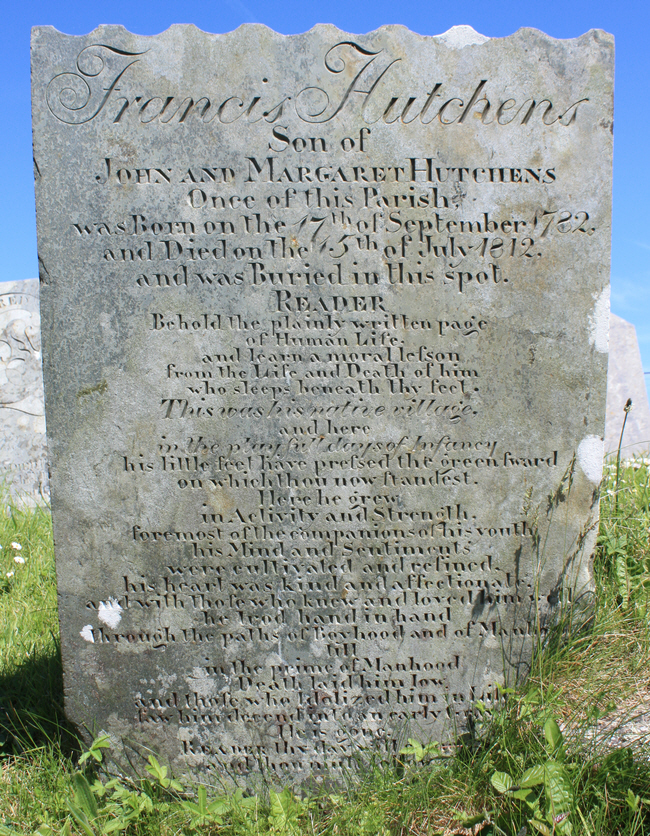 Francis Hutchens
Son of
JOHN AND MARGARET HUTCHENS
Once of this Parish,
was Born on the 17th of September 1782.
and Died on the 15th of July 1812.
and was Buried in this spot.
READER
Behold the plainly written page
of Human Life.
and learn a moral leſson
from the Life and Death of him
who sleeps beneath thy feet.
This was his native village.
and here
in the playfull days of Infancy
his little feet have preſsed the green ſward
on which thou now ſtandest.
Here he grew
in Activity and Strength.
foremost of the companions of his youth
his Mind and Sentiments
were cultivated and refined.
his heart was kind and affectionate.
and with thoſe who knew and loved him
he trod hand in hand
through the paths of Boyhood and of
till
in the prime of Manhood
Death laid him low.
and thoſe who Idolized him in Life
ſaw him deſcend into an early
He is gone.
READER thy day
and thou muſt